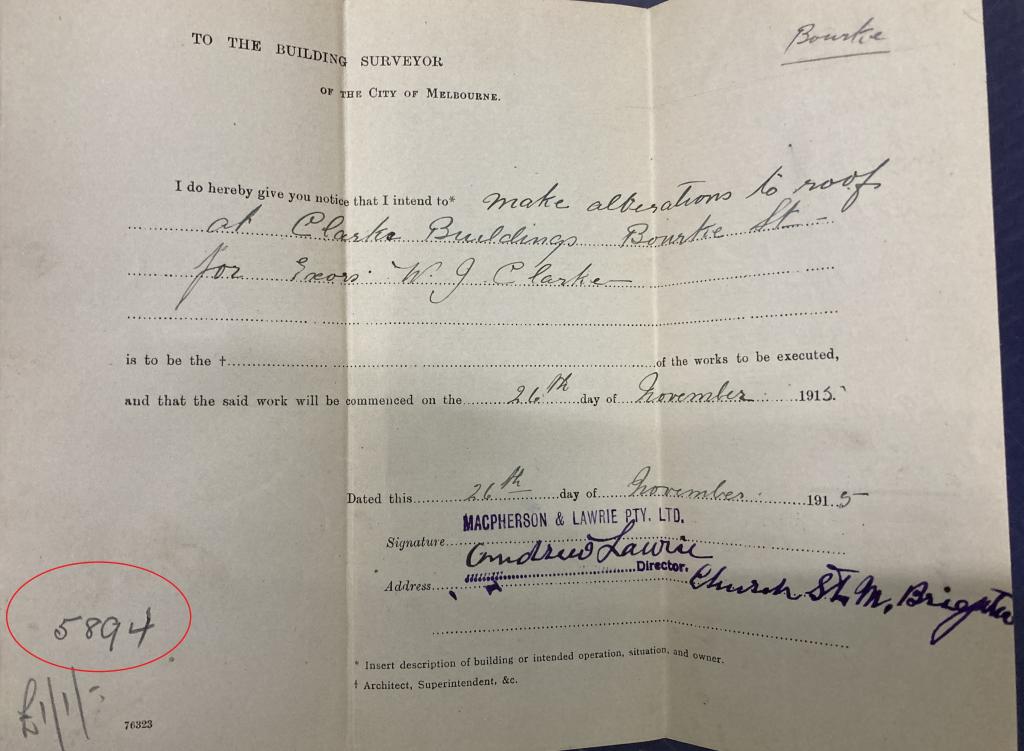 Bourke
TO THE BUILDING SURVEYOR
OF THE CITY OF MELBOURNE.
I do hereby give you notice that I intend to* make alterations to roof
at Clarke Buildings Bourke St -
for Exors. W. J Clarke
is to be the † of the works to be executed,
and that the said work will be commenced on the 26th day of November 1915.
Dated this 26th day of November 1915
MACPHERSON & LAWRIE PTY. LTD.
Signature Andrew Lawrie
Director.
Address Church St. M. Brighton
5894
* Insert description of building or intended operation, situation, and owner.
† Architect, Superintendent, &c.
£1/1/-
76323